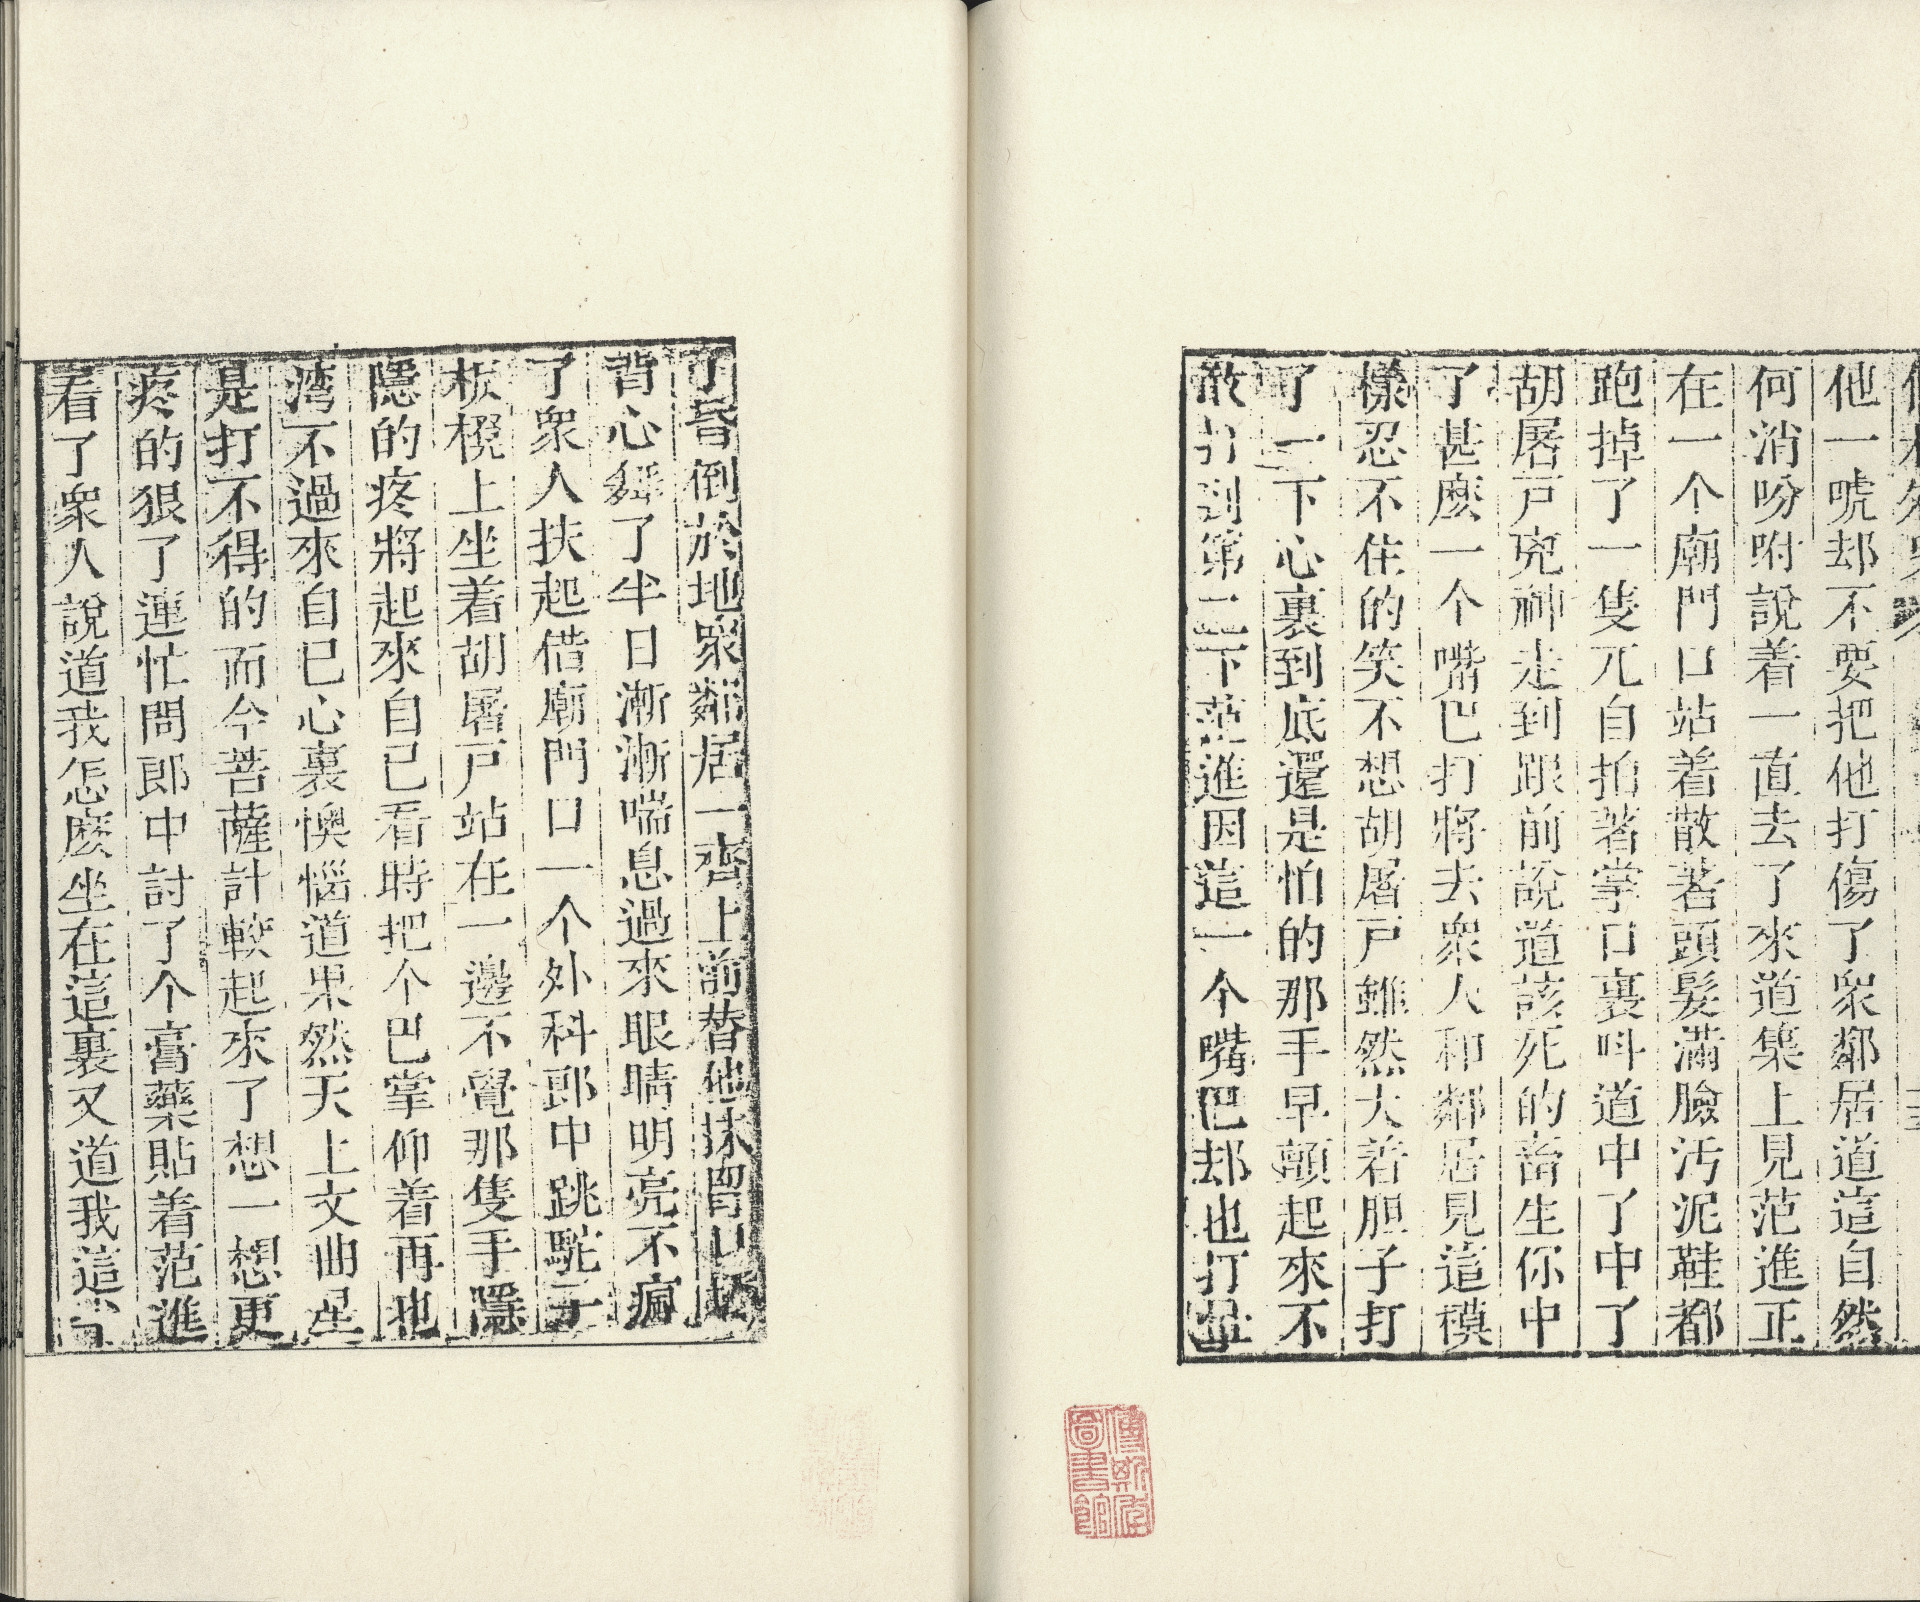 他一唬却不要把他打傷了衆鄰居道這自然
何消吩咐說着一直去了來道集上見范進正
在一个廟門口站着散著頭髮滿臉汚泥鞋都
跑掉了一隻兀自拍著掌口裏呌道中了中了
胡屠戸兇神走到跟前說道該死的畜生你中
了甚麽一个嘴巴打將去衆人和鄰居見這模
樣忍不住的笑不想胡屠戸雖然大着胆子打
了一下心裏到底還是怕的那手早顫起來不
敢打到第二下范進因這一个嘴巴却也打暈
了昏倒於地衆鄰居一齊上前替他抹胷口搥
背心舞了半日漸漸喘息過來眼睛明亮不瘋
了衆人扶起借廟門口一个外科郎中跳駝子
板櫈上坐着胡屠戸站在一邊不覺那隻手隱
隱的疼將起來自已看時把个巴掌仰着再也
湾不過來自已心裏懊惱道果然天上文曲星
是打不得的而今菩薩計較起來了想一想更
疼的狠了連忙問郎中討了个膏藥貼着范進
看了衆人說道我怎麽坐在這裏又道我這
傅斯年圖書館